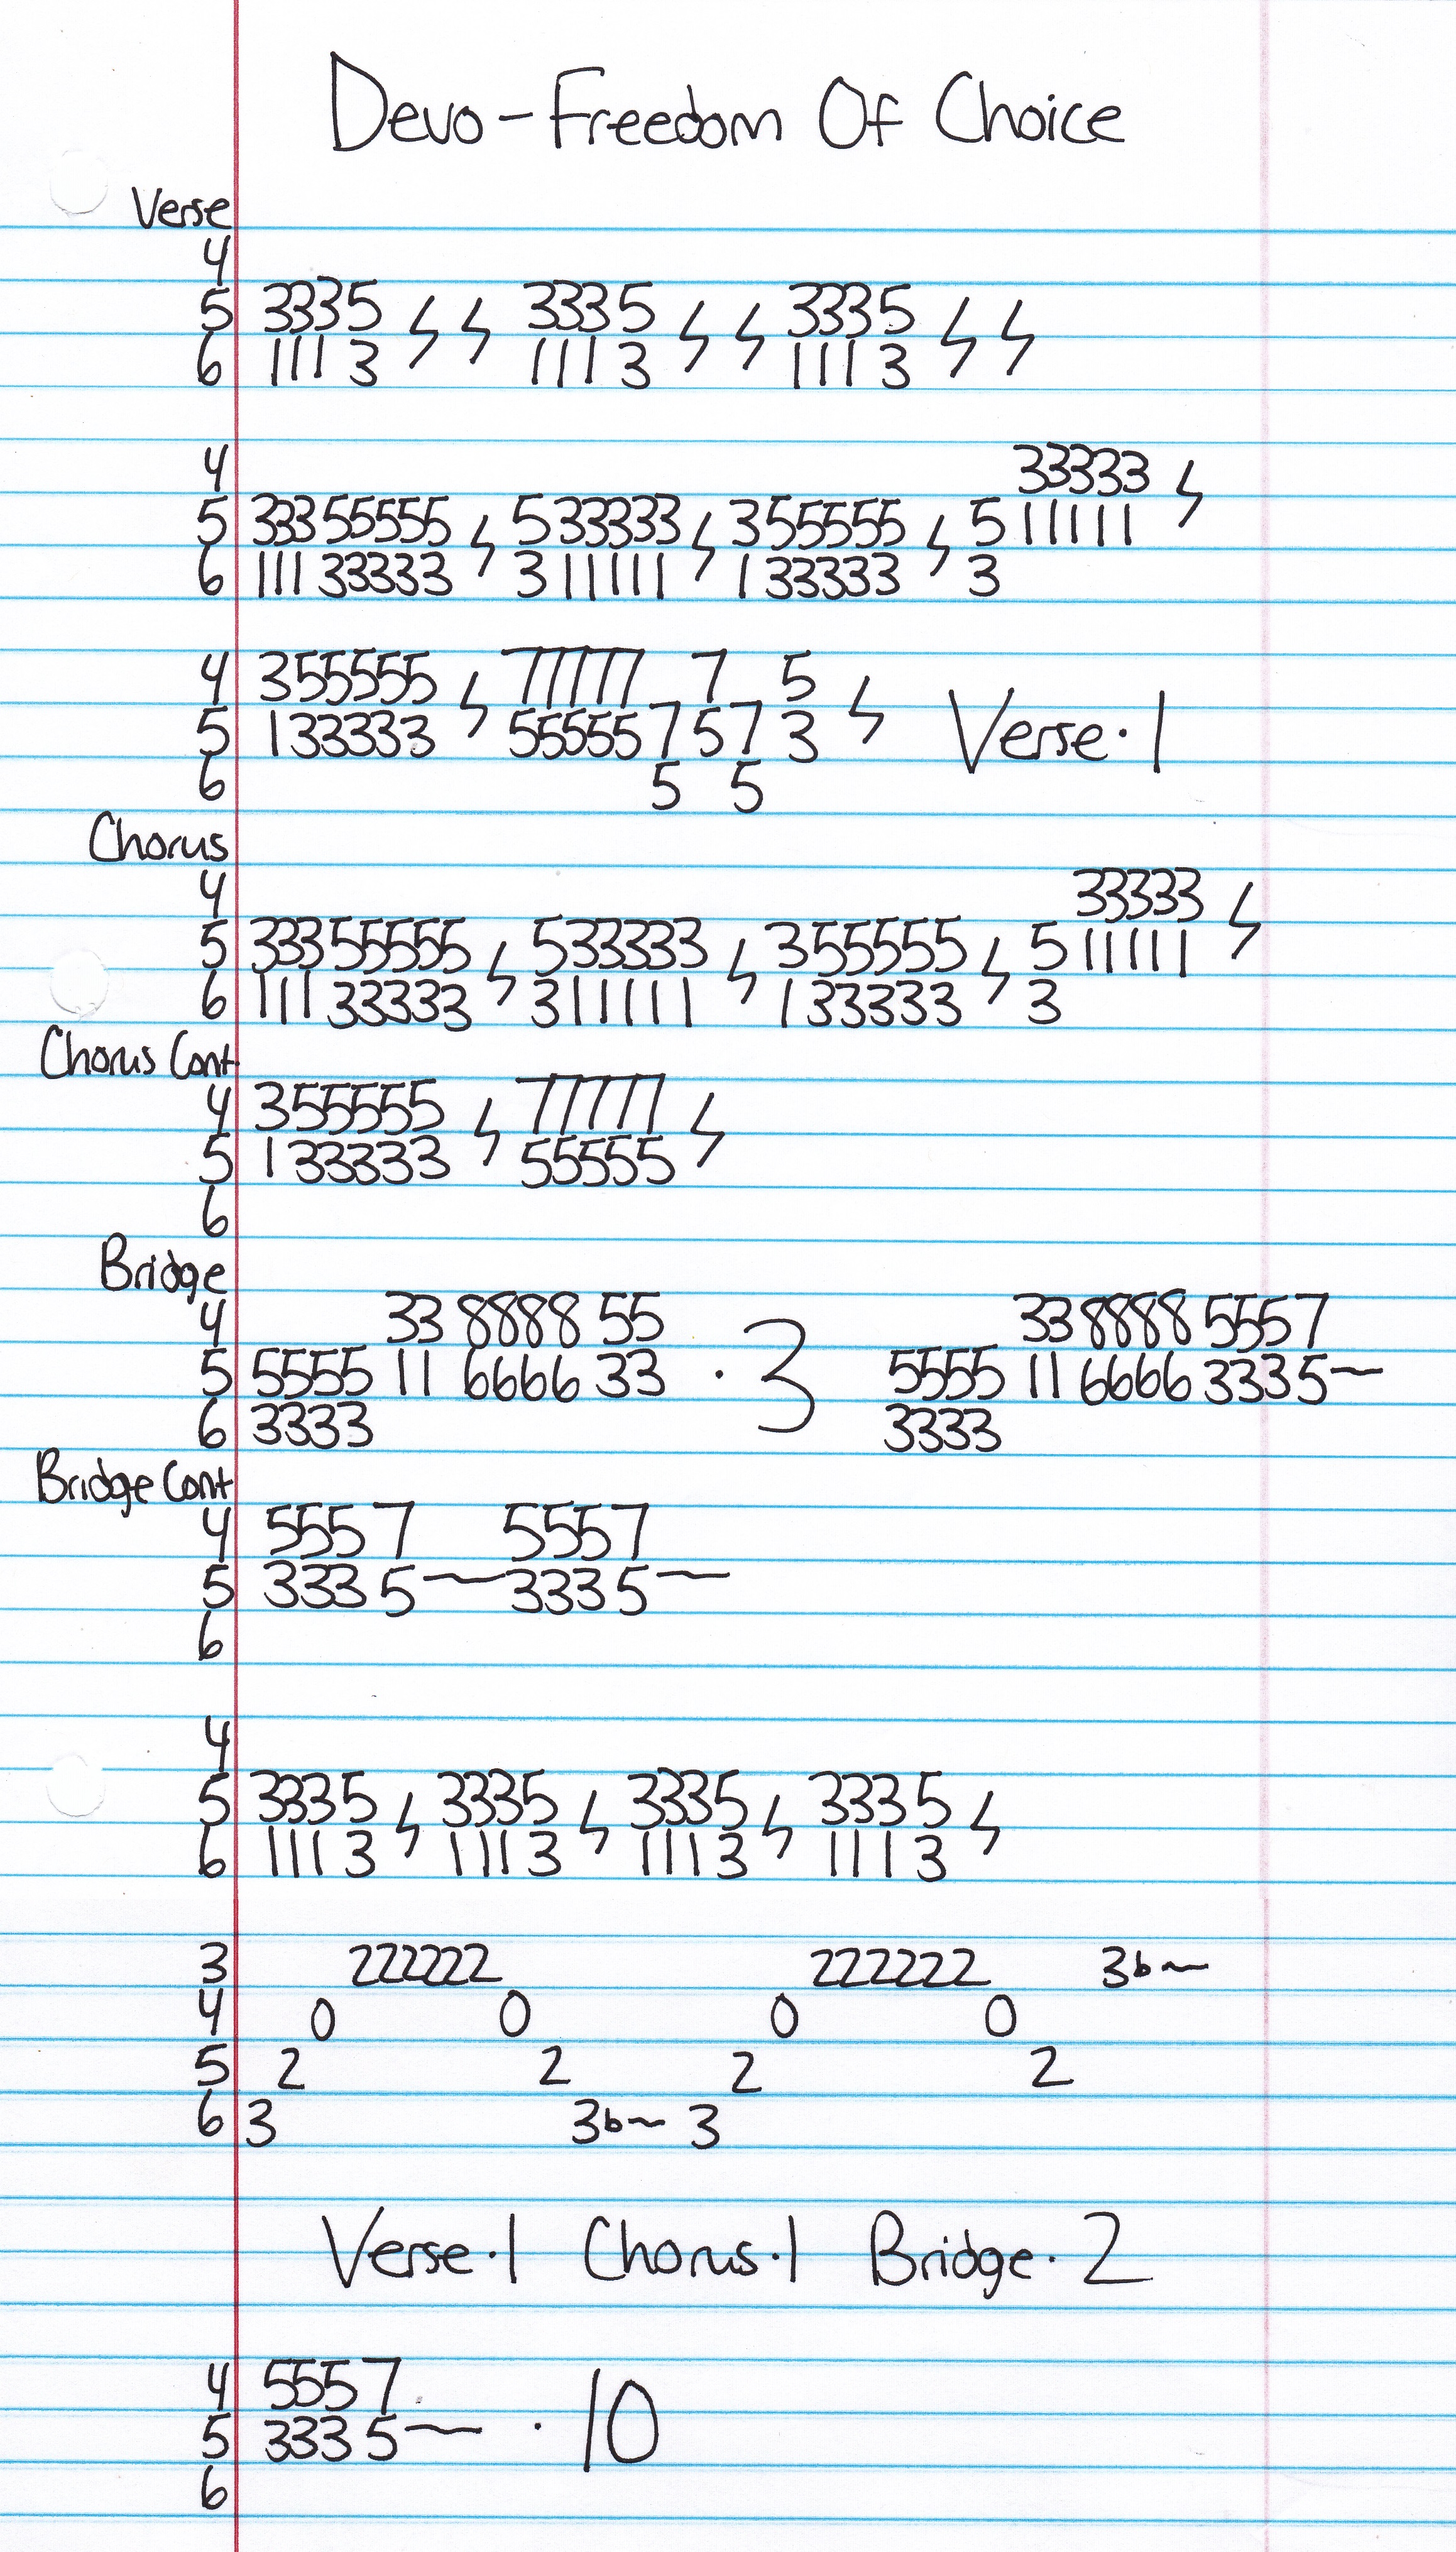 Devo - Freedom Of Choice
Verse
4
5 3335 ϟ ϟ 3335 ϟ ϟ 3335 ϟ ϟ
6 1113 1113 1113
4 33333 ϟ
5 33355555 ϟ 533333 ϟ 355555 ϟ 5 11111
6 11133333 311111 133333 3
4 355555 ϟ 77777 7 5 ϟ
5 133333 55555 7 5 7 3 Verse · 1
6 5 5
Chorus
4 33333 ϟ
5 33355555 ϟ 533333 ϟ 355555 ϟ 5 11111
6 11133333 311111 133333 3
Chorus Cont
4 355555 ϟ 77777 ϟ
5 133333 55555
6
Bridge
4 33 8888 55 33 8888 5557
5 5555 11 6666 33 · 3 5555 11 6666 3335~
6 3333 3333
Bridge Cont
4 5557 5557
5 3335~ 3335~
6
4
5 3335 ϟ 3335 ϟ 3335 ϟ 3335 ϟ
6 1113 1113 1113 1113
3 222222 222222 3b~
4 0 0 0 0
5 2 2 2 2
6 3 3b~ 3
Verse · 1 Chorus · 1 Bridge · 2
4 5557
5 3335~ · 10
6